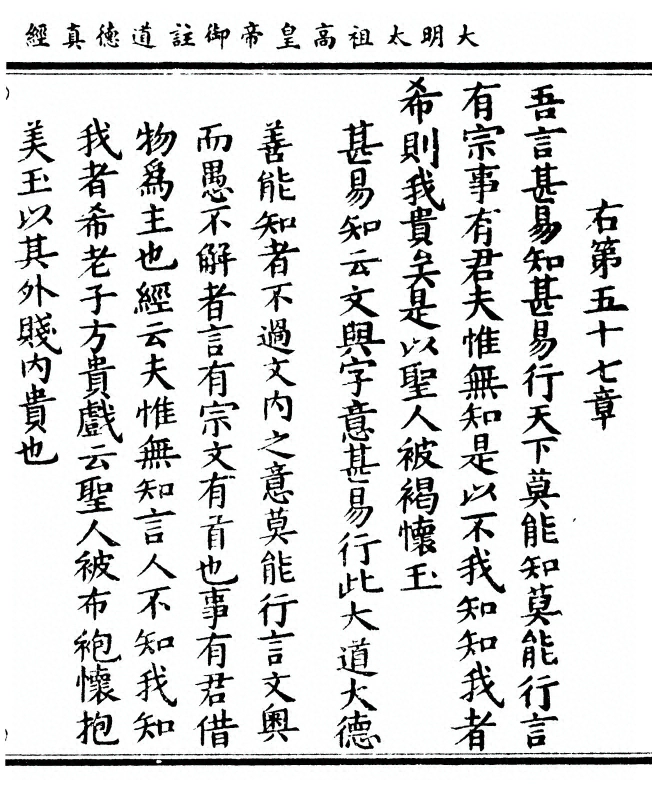 大明太祖高皇帝御註道德真經
右第五十七章
吾言甚易知甚易行天下莫能知莫能行言
有宗事有君夫惟無知是以不我知知我者
希則我貴矣是以聖人被褐懷玉
甚易知云文與字意甚易行此大道大德
善能知者不過文內之意莫能行言文奧
而愚不解者言有宗文有首也事有君借
物爲主也經云夫惟無知言人不知我知
我者希老子方貴戲云聖人被布袍懷抱
美玉以其外賤內貴也